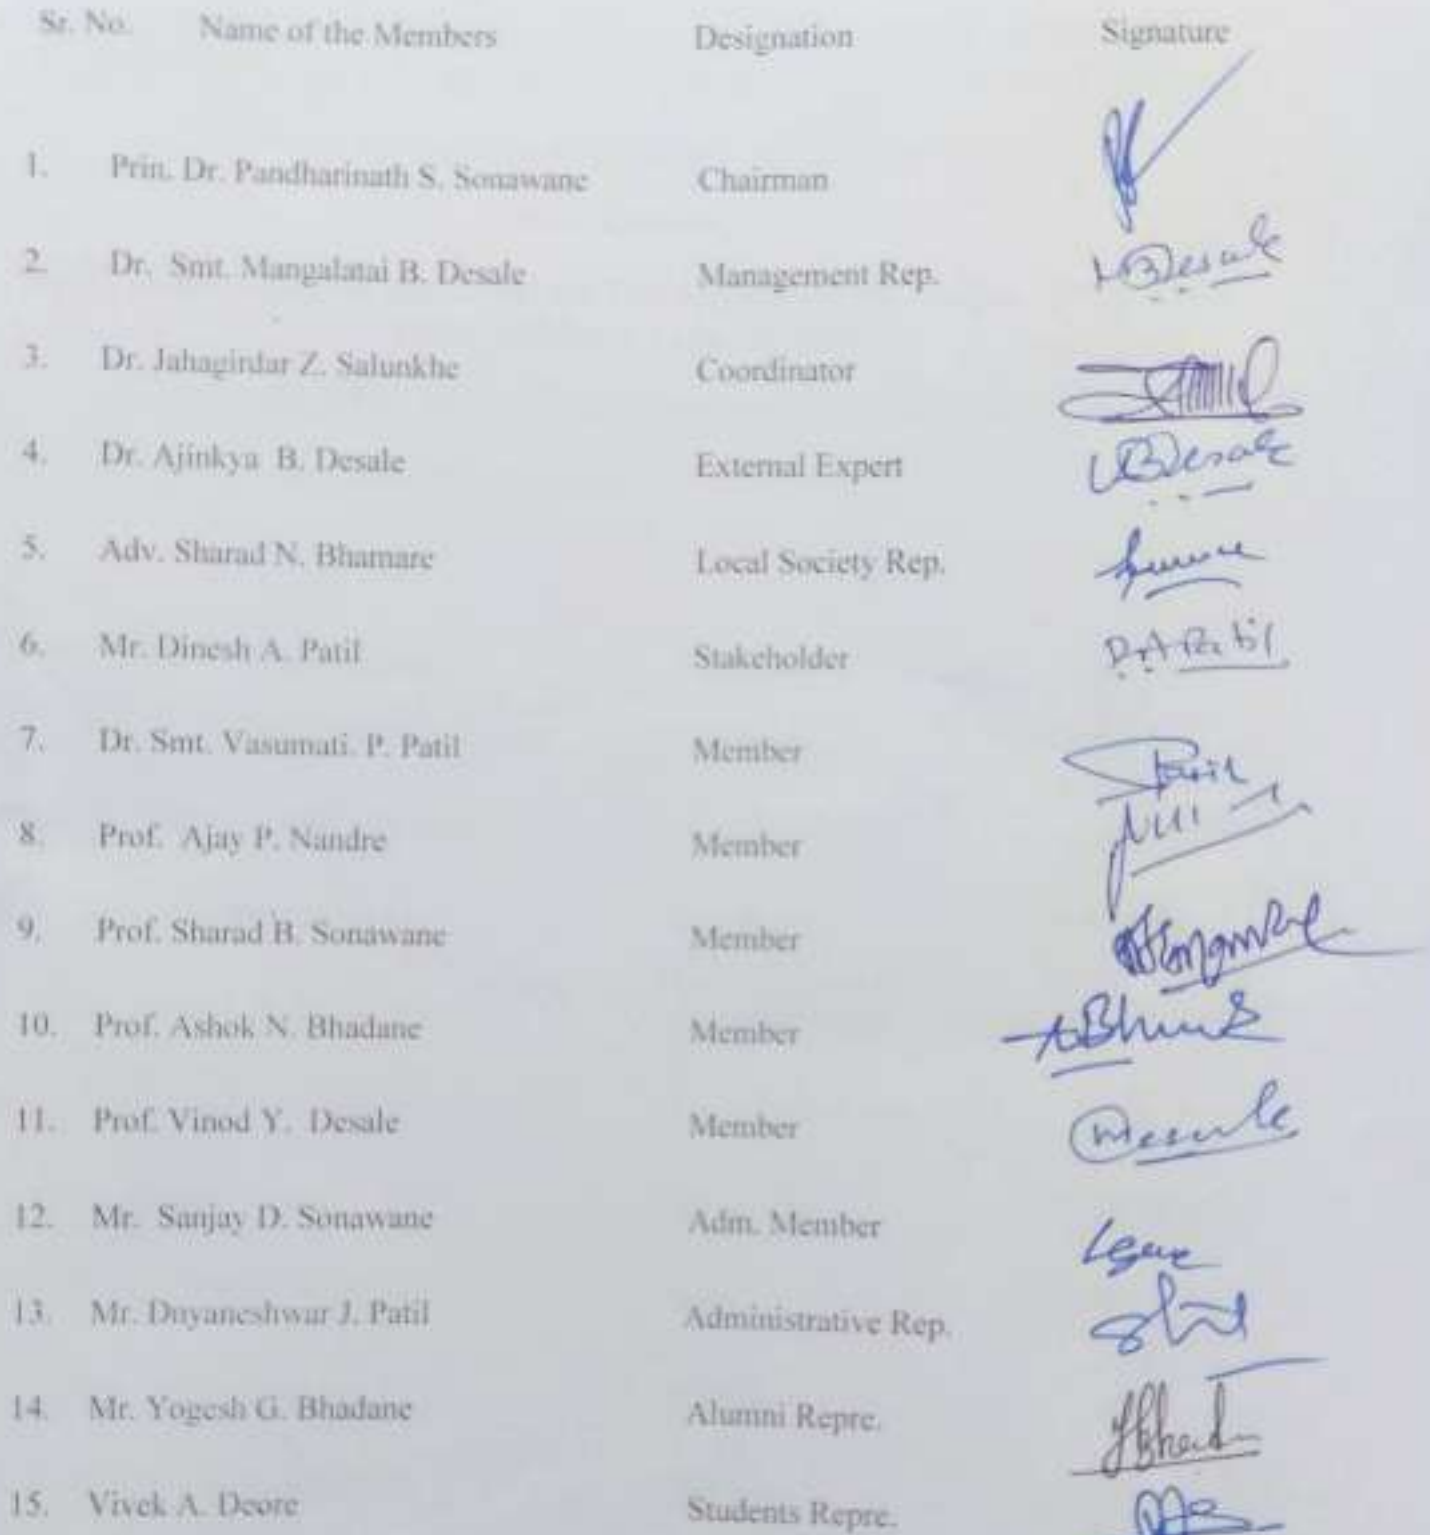 Sr. No. Name of the Members Designation Signature
1. Prin. Dr. Pandharinath S. Sonawane Chairman
2. Dr. Smt. Mangalatai B. Desale Management Rep. Desale
3. Dr. Jahagirdar Z. Salunkhe Coordinator
4. Dr. Ajinkya B. Desale External Expert Desale
5. Adv. Sharad N. Bhamare Local Society Rep.
6. Mr. Dinesh A. Patil Stakeholder D.A.Patil
7. Dr. Smt. Vasumati. P. Patil Member
8. Prof. Ajay P. Nandre Member
9. Prof. Sharad B. Sonawane Member
10. Prof. Ashok N. Bhadane Member
11. Prof. Vinod Y. Desale Member
12. Mr. Sanjay D. Sonawane Adm. Member
13. Mr. Dnyaneshwar J. Patil Administrative Rep.
14. Mr. Yogesh G. Bhadane Alumni Repre.
15. Vivek A. Deore Students Repre.